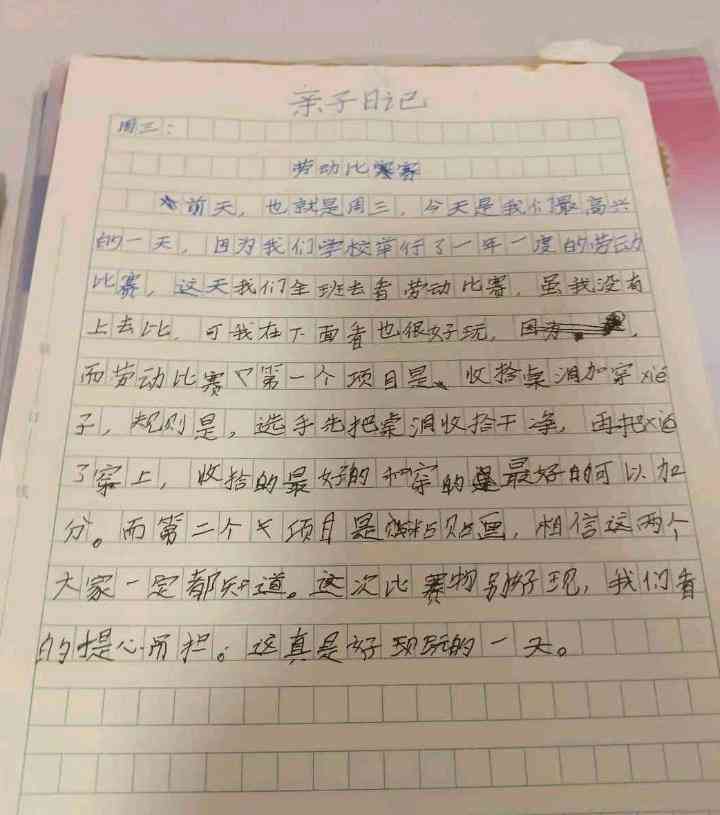 亲子日记
周三：
劳动比赛
前天，也就是周三，今天是我们最高兴
的一天，因为我们学校举行了一年一度的劳动
比赛，这天我们全班去看劳动比赛，虽我没有
上去比，可我在下面看也很好玩，因为
而劳动比赛第一个项目是、收拾桌洞加穿xié
子，规则是，选手先把桌洞收拾干净，再把xié
子穿上，收拾的最好的和穿的最好的可以加
分。而第二个项目是粘贴画，相信这两个
大家一定都知道。这次比赛特别好玩，我们看
的提心吊担。这真是好玩的一天。